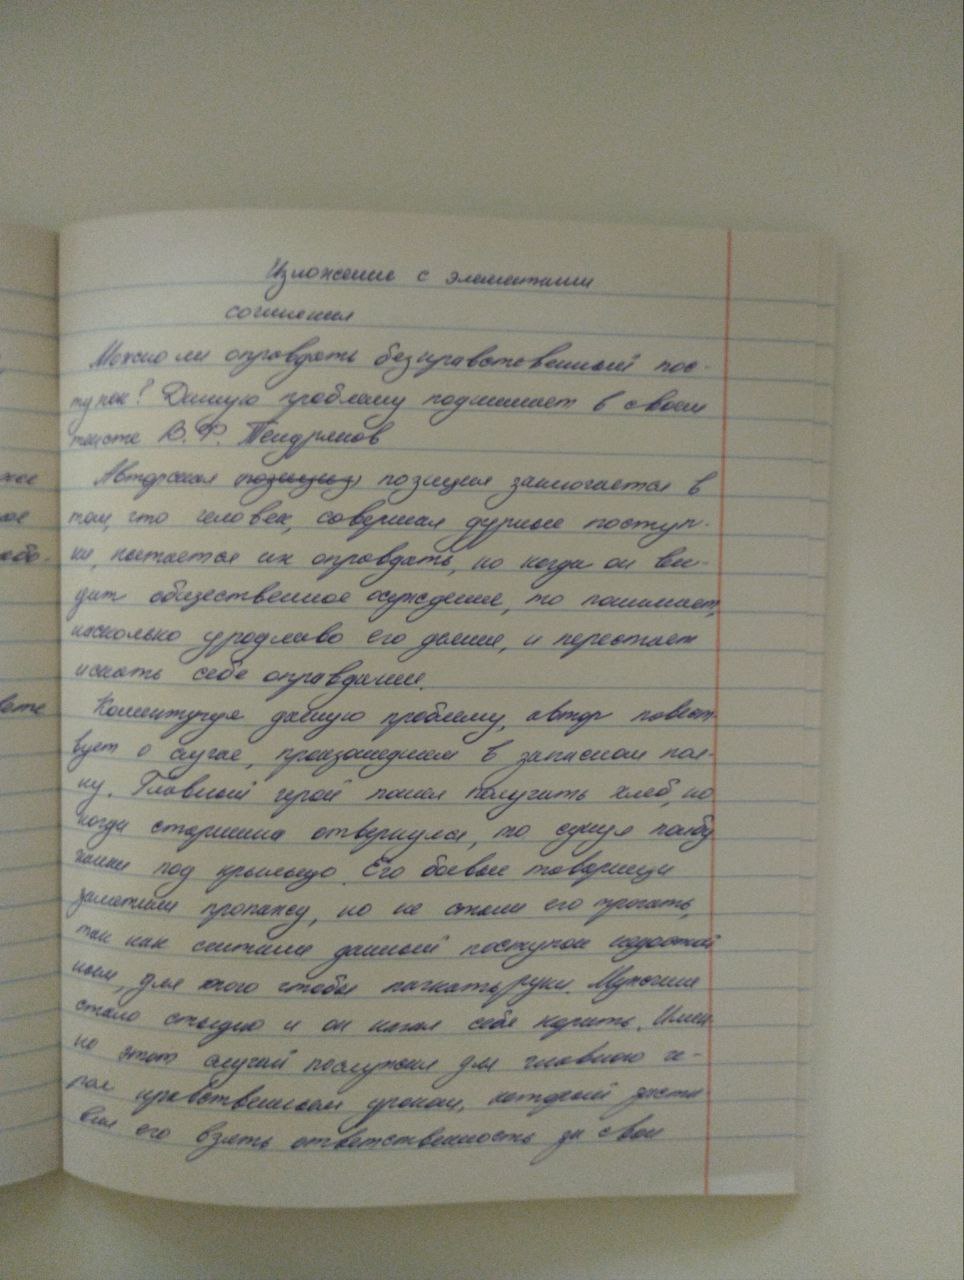 Изложение с элементами
сочинения
Можно ли оправдать безнравственный пос-
тупок? Данную проблему поднимает в своем
тексте В. Ф. Тендряков
Авторская позиция заключается в
том, что человек, совершая дурные поступ-
ки, пытается их оправдать, но когда он ви-
дит общественное осуждение, то понимает,
насколько уродливо его деяние, и перестает
искать себе оправдание.
Комментируя данную проблему, автор повест-
вует о случае, произошедшем в запасном пол-
ку. Главный герой пошел получить хлеб, но
когда старшина отвернулся, то сунул полбу
ханки под крыльцо. Его боевые товарищи
заметили пропажу, но не стали его трогать,
так как считали данный поступок недостой
ным, для того чтобы пачкать руки. Мужчине
стало стыдно и он начал себя корить. Имен
но этот случай послужил для главного ге-
роя нравственным уроком, который заста
вил его взять ответственность за свои